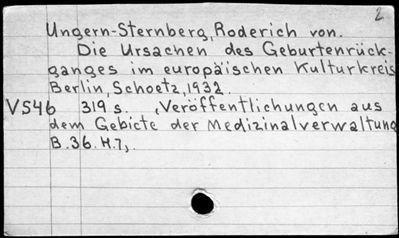 2
Ungern-Sternberg, Roderich von.
Die Ursachen des Geburtenrück-
ganges im europäischen Kulturkreis
Berlin, Schoetz, 1932.
V546 319 s. (Veröffentlichungen aus
dem Gebiete der Medizinalverwaltung
B. 36. H. 7).